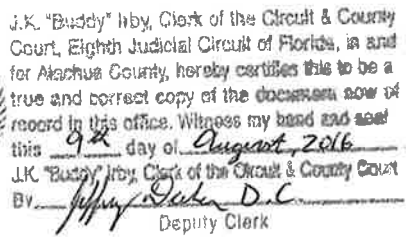 J.K. "Buddy" Irby, Clerk of the Circuit & County
Court, Eighth Judicial Circuit of Florida, in and
for Alachua County, hereby certifies this to be a
true and correct copy of the document now of
record in this office. Witness my hand and seal
this 9th day of August, 2016
J.K. "Buddy" Irby, Clerk of the Circuit & County Court
By D.C.
Deputy Clerk